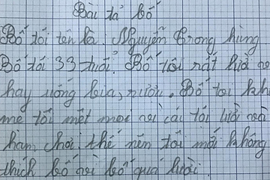 Bài tả bố
Bố tôi tên là. Nguyễn Trong hùng
Bố tôi 33 tuổi. Bố tôi rất
hay uống bia, rượu. Bố tôi
mẹ tôi mệt mỏi với cái tội lười và
ham chơi thế nên tôi mới không
thích bố vì bố quá lười.